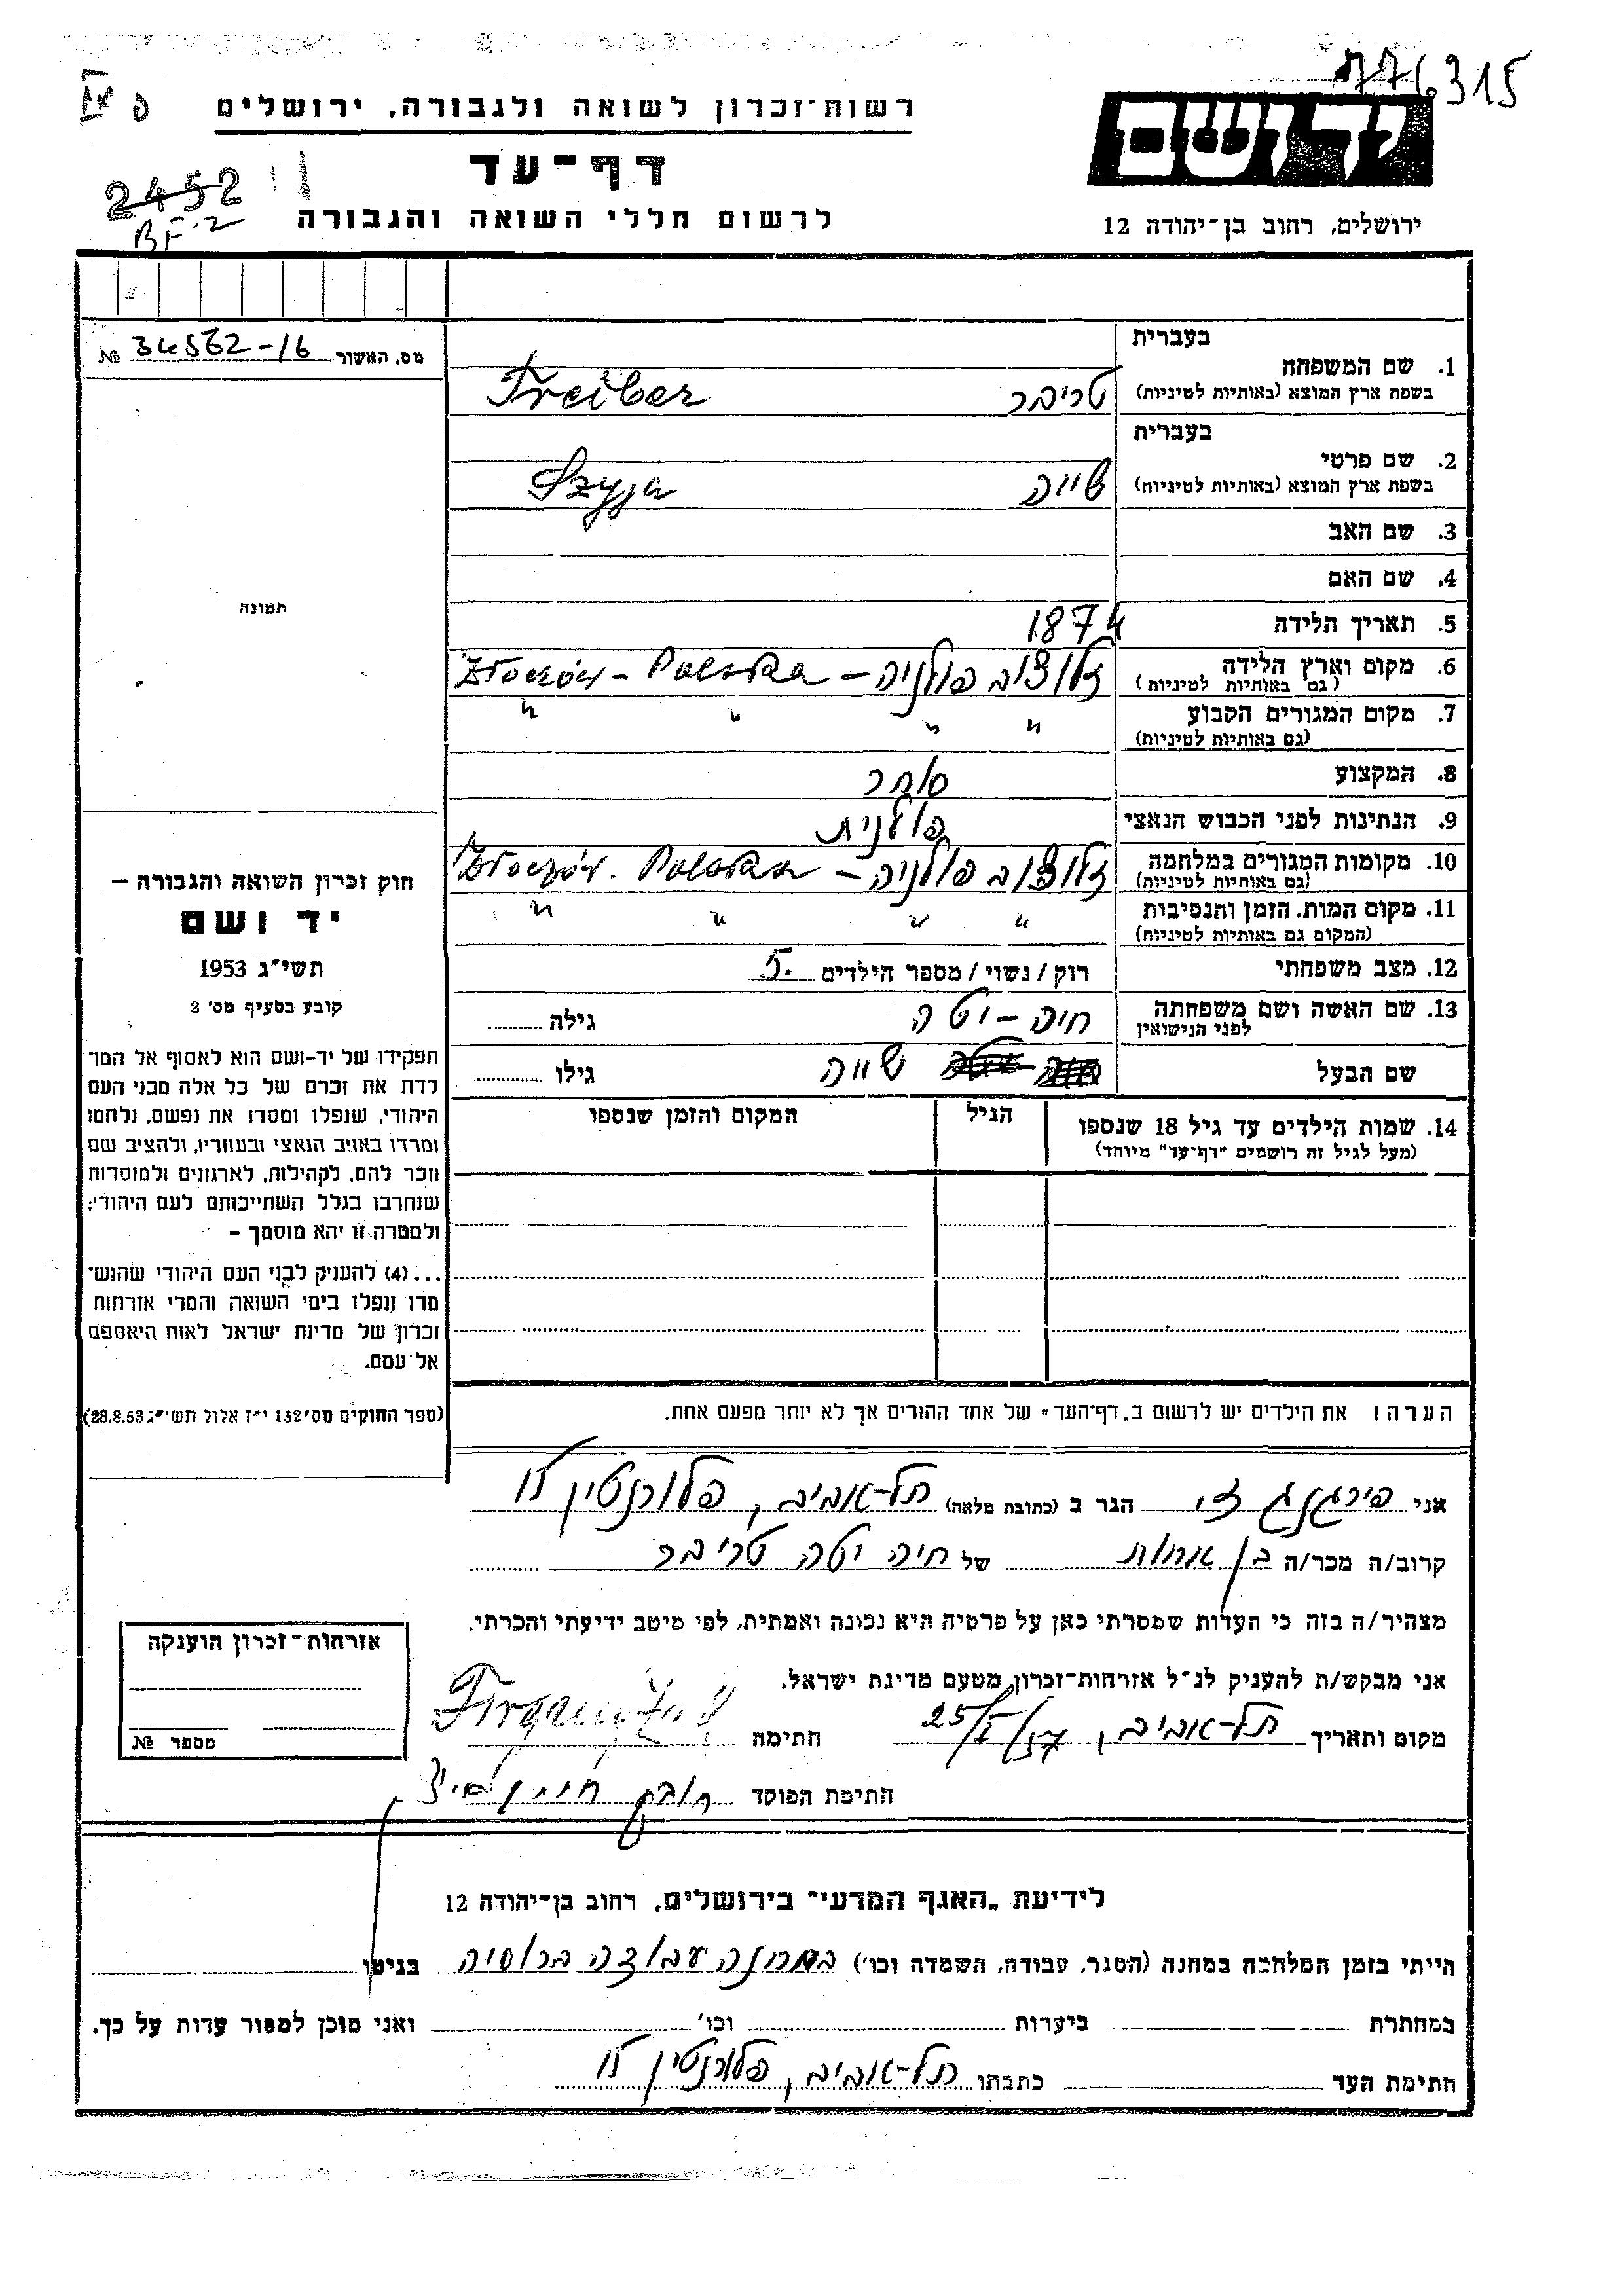 776315
IX פ
רשות־זכרון לשואה ולגבורה, ירושלים
יד ושם
דף־עד
2452
BF·2
לרשום חללי השואה והגבורה
ירושלים, רחוב בן־יהודה 12
מס. האשור 34532-16 №
תמונה
בעברית
1. שם המשפחה
בשפת ארץ המוצא (באותיות לטיניות)
טריבר Treiber
בעברית
2. שם פרטי
בשפת ארץ המוצא (באותיות לטיניות)
שייה Szyja
3. שם האב
4. שם האם
5. תאריך הלידה 1874
6. מקום וארץ הלידה זלוצוב פולניה – Złoczów – Polska
(גם באותיות לטיניות)
7. מקום המגורים הקבוע " " " "
(גם באותיות לטיניות)
8. המקצוע סוחר
9. הנתינות לפני הכבוש הנאצי פולנית
10. מקומות המגורים במלחמה זלוצוב פולניה – Złoczów. Polska
(גם באותיות לטיניות)
11. מקום המות, הזמן והנסיבות " " " "
(המקום גם באותיות לטיניות)
12. מצב משפחתי רוק/נשוי/מספר הילדים 5.
13. שם האשה ושם משפחתה חיה – יטה גילה
לפני הנישואין
שם הבעל שייה גילו
14. שמות הילדים עד גיל 18 שנספו הגיל המקום והזמן שנספו
(מעל לגיל זה רושמים "דף־עד" מיוחד)
הערה: את הילדים יש לרשום ב„דף־העד" של אחד ההורים אך לא יותר מפעם אחת.
חוק זכרון השואה והגבורה –
יד ושם
תשי"ג 1953
קובע בסעיף מס' 2
תפקידו של יד-ושם הוא לאסוף אל המו־
לדת את זכרם של כל אלה מבני העם
היהודי, שנפלו ומסרו את נפשם, נלחמו
ומרדו באויב הנאצי ובעוזריו, ולהציב שם
וזכר להם, לקהילות, לארגונים ולמוסדות
שנחרבו בגלל השתייכותם לעם היהודי;
ולמטרה זו יהא מוסמך –
...(4) להעניק לבני העם היהודי שהוש־
מדו ונפלו בימי השואה והמרי אזרחות
זכרון של מדינת ישראל לאות היאספם
אל עמם.
(ספר החוקים מס' 132 י"ז אלול תשי"ג 28.8.53)
אני פירגנג זי הגר ב (כתובת מלאה) תל-אביב, פלורנטין
קרוב/ה מכר/ה בן אחות של חיה יטה טריבר
מצהיר/ה בזה כי העדות שמסרתי כאן על פרטיה היא נכונה ואמתית, לפי מיטב ידיעתי והכרתי.
אני מבקש/ת להעניק לנ"ל אזרחות־זכרון מטעם מדינת ישראל.
מקום ותאריך תל-אביב, 25/I/57 חתימה
חתימת הפוקד
אזרחות־זכרון הוענקה
מספר №
לידיעת „האגף המדעי" בירושלים, רחוב בן־יהודה 12
הייתי בזמן המלחמה במחנה (הסגר, עבודה, השמדה וכו') במחנה עבודה ברוסיה בגיטו
במחתרת ביערות וכו' ואני מוכן למסור עדות על כך.
חתימת העד כתבתו תל-אביב, פלורנטין